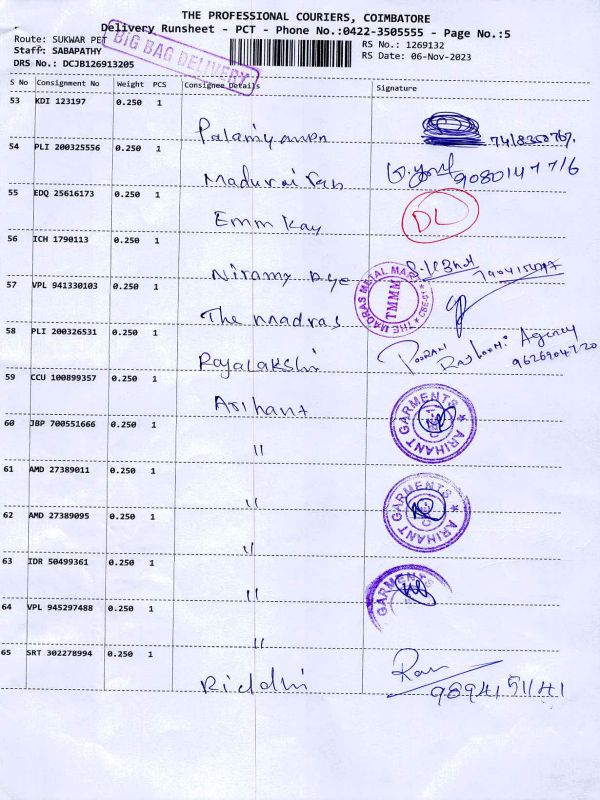 THE PROFESSIONAL COURIERS, COIMBATORE
Delivery Runsheet - PCT - Phone No.:0422-3505555 - Page No.:5
Route: SUKWAR PET
RS No.: 1269132
Staff: SABAPATHY
RS Date: 06-Nov-2023
DRS No.: DCJB126913205
BIG BAG DELIVERY
S No Consignment No Weight PCS Consignee Details Signature
53 KDI 123197 0.250 1
54 PLI 200325556 0.250 1
Madurai 9080147716
55 EDQ 25616173 0.250 1
Emm Kay DL
56 ICH 1790113 0.250 1
Niramy
57 VPL 941330103 0.250 1
The madras THE MADRAS METAL MART TMMM
58 PLI 200326531 0.250 1
Rajalakshi POORANI Agency
9626904720
59 CCU 100899357 0.250 1
Arihant ARIHANT GARMENTS
60 JBP 700551666 0.250 1
"
61 AMD 27389011 0.250 1
" ARIHANT GARMENTS
62 AMD 27389095 0.250 1
"
63 IDR 50499361 0.250 1
" GARMENTS
64 VPL 945297488 0.250 1
"
65 SRT 302278994 0.250 1
Riddhi 9894151141